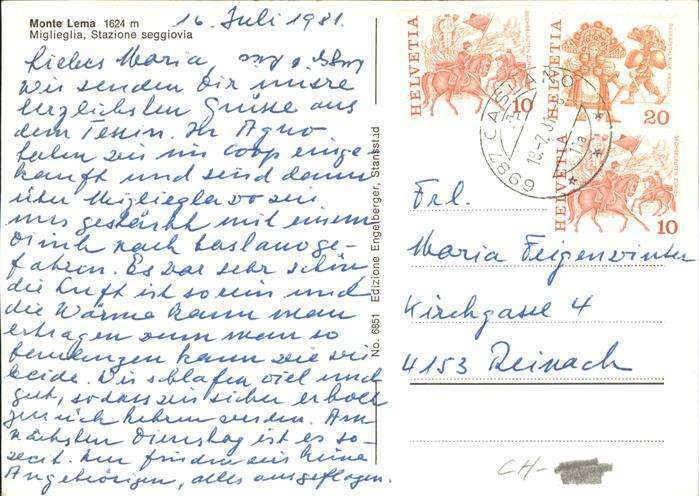 Monte Lema 1624 m
Miglieglia, Stazione seggiovia
16. Juli 1981.
Liebes Maria,
wir senden Dir unsre
herzlichsten Grüsse aus
dem Tessin. In Agno
haben wir im Coop einge-
kauft und sind dann
über Miglieglia wo wir
uns gestärkt mit einem
Drink nach Caslano ge-
fahren. Es war sehr schön,
die Luft ist so rein und
die Wärme kann man
ertragen wenn man so
kann wie wir
beide. Wir schlafen viel und
gut, sodass wir sicher erholt
zurück kehren werden. Am
nächsten Dienstag ist es so-
weit. Nur finden wir keine
Angehörigen, alles ausgeflogen.
No. 6851 Edizione Engelberger, Stansstad
HELVETIA 10
HELVETIA 20
HELVETIA 10
6987 CASLANO
18.-7.81
Frl.
Maria Feigenwinter
Kirchgasse 4
4153 Reinach
CH-